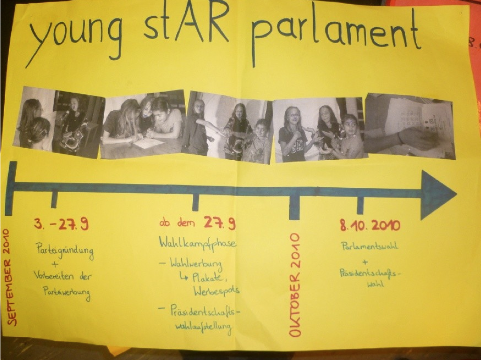 young stAR parlament
SEPTEMBER 2010
3. - 27.9
Parteigründung
+
Vorbereiten der
Parteiwerbung
ab dem 27.9
Wahlkampfphase
- Wahlwerbung
↳ Plakate,
Werbespots
- Präsidentschafts-
wahlaufstellung
OKTOBER 2010
8.10.2010
Parlamentswahl
+
Präsidentschafts-
wahl